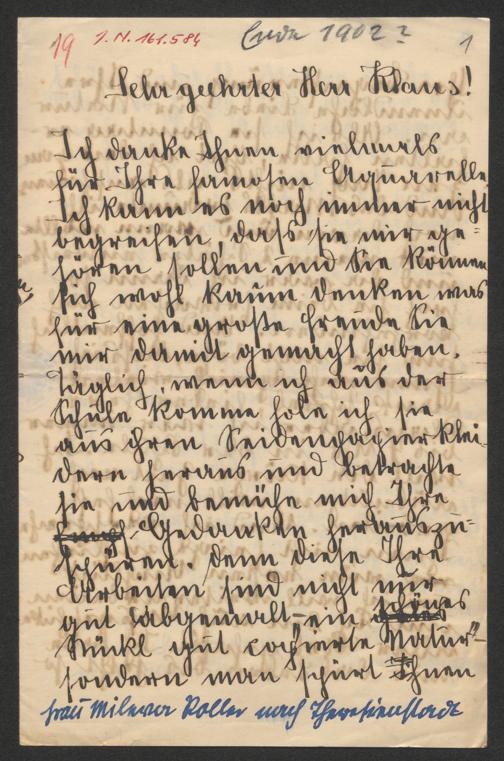 19 I. N. 161.584 Ende 1902? 1
Sehr geehrter Herr Klaus!
Ich danke Ihnen vielmals
für Ihre famosen Aquarelle
Ich kann es noch immer nicht
begreifen, dass sie mir ge=
hören sollen und Sie können
sich wohl kaum denken was
für eine große Freude Sie
mir damit gemacht haben.
Täglich, wenn ich aus der
Schule komme hole ich sie
aus ihren Seidenpapierklei
dern heraus und betrachte
sie und bemühe mich Ihre
Gedanken herauszu=
spüren. Denn diese Ihre
Arbeiten sind nicht nur
gut abgemalt - ein schönes
Stückl gut copierte Natur"-
sondern man spürt Ihnen
Frau Milewa Roller nach Theresienstadt